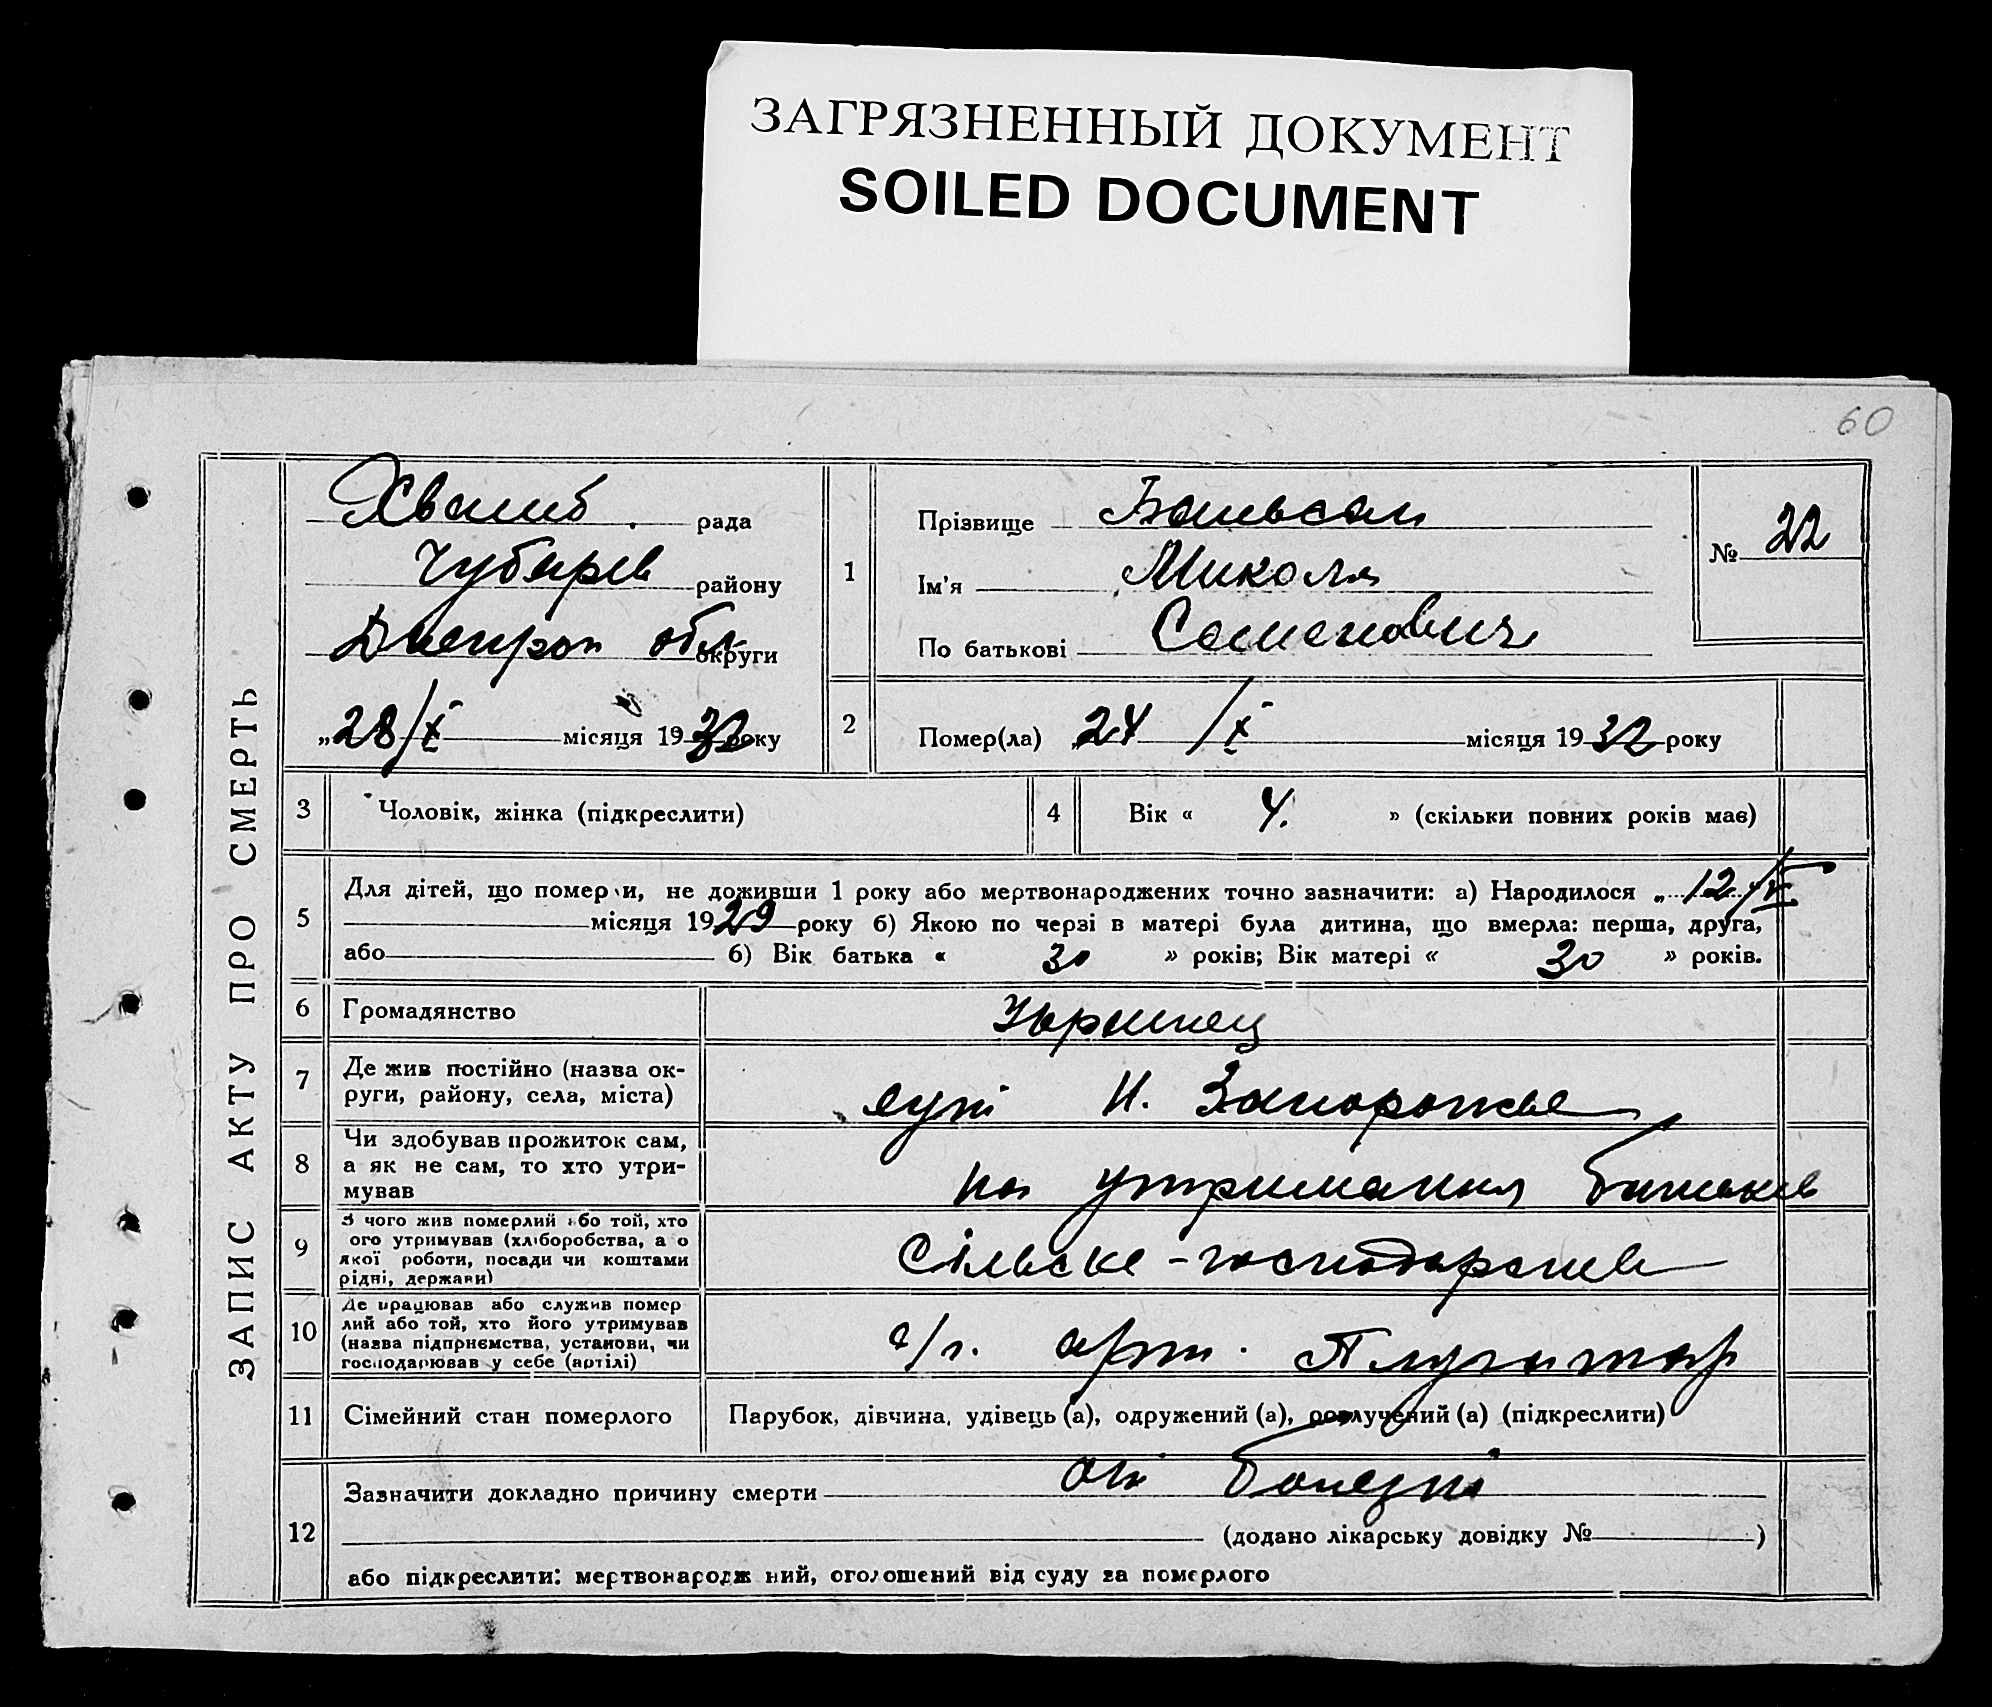 ЗАГРЯЗНЕННЫЙ ДОКУМЕНТ
SOILED DOCUMENT
60
ЗАПИС АКТУ ПРО СМЕРТЬ
рада
Чубарів району
Дніпроп обл округи
„28/X місяця 1932 року
1
Прізвище
Ім'я Микола
По батькові Семенович
№ 22
2
Помер(ла) „24 /X місяця 1932 року
3 Чоловік, жінка (підкреслити)
4 Вік « 4. » (скільки повних років має)
5 Для дітей, що померли, не доживши 1 року або мертвонароджених точно зазначити: а) Народилося „12/V
місяця 1929 року б) Якою по черзі в матері була дитина, що вмерла: перша, друга,
або б) Вік батька « 30 » років; Вік матері « 30 » років.
6 Громадянство Украинец
7 Де жив постійно (назва ок-
руги, району, села, міста) Н. Запорожье
8 Чи здобував прожиток сам,
а як не сам, то хто утри-
мував
на утримания батьків
9 З чого жив померлий або той, хто
ого утримував (хліборобства, а о
якої роботи, посади чи коштами
рідні, держави)
Сільське-господарств
10 Де працював або служив помер
лий або той, хто його утримував
(назва підприємства, установи, чи
господарював у себе (артілі)
с/г. арт. Плугатар
11 Сімейний стан померлого Парубок, дівчина, удівець (а), одружений (а), розлучений (а) (підкреслити)
12 Зазначити докладно причину смерти от болезні
(додано лікарську довідку № )
або підкреслити: мертвонародж ний, оголошений від суду за померлого